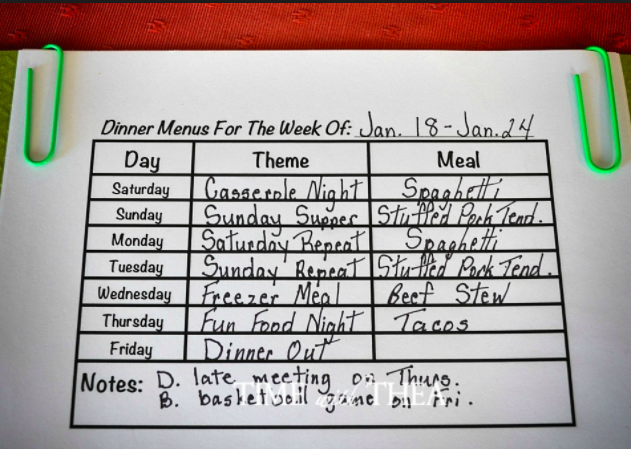 Dinner Menus For The Week Of: Jan. 18 - Jan. 24
Day Theme Meal
Saturday Casserole Night Spaghetti
Sunday Sunday Supper Stuffed Pork Tend.
Monday Saturday Repeat Spaghetti
Tuesday Sunday Repeat Stuffed Pork Tend.
Wednesday Freezer Meal Beef Stew
Thursday Fun Food Night Tacos
Friday Dinner Out
Notes: D. late meeting on Thurs.
B. basketball game on Fri.
TIME with THEA